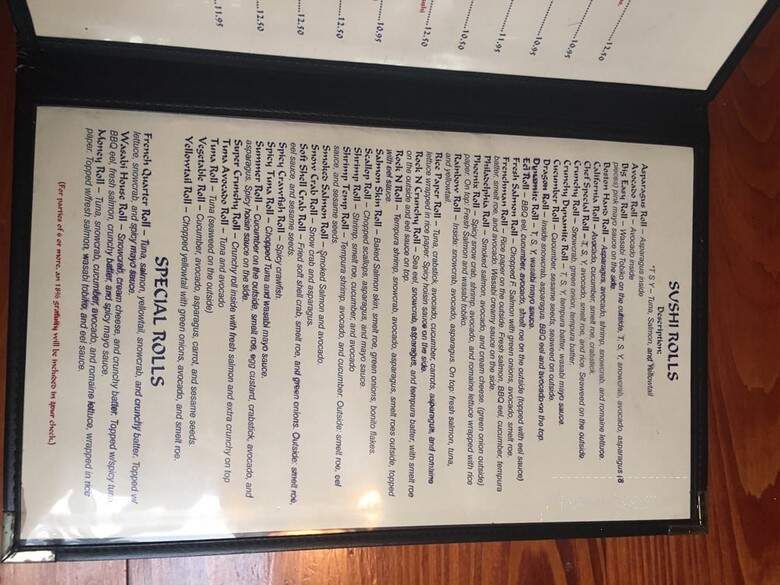 12.50
10.95
10.95
11.95
10.50
12.50
10.95
12.50
12.50
12.50
11.95
SUSHI ROLLS
Description:
*T S Y – Tuna, Salmon, and Yellowtail
Asparagus Roll – Asparagus inside
Avocado Roll – Avocado inside
Big Easy Roll – Wasabi Tobiko on the outside, T, S, Y, snowcrab, avocado, asparagus (8
pieces) pink mayo sauce on the side.
Bayou Hana Roll – Asparagus, avocado, shrimp, snowcrab, and romaine lettuce
California Roll – Avocado, cucumber, smelt roe, crabstick.
Chef Special Roll – T, S, Y, avocado, smelt roe, and rice. Seaweed on the outside.
Crunchy Roll – Snowcrab, green onion, tempura batter
Crunchy Dynamite Roll – T, S, Y, tempura batter, wasabi mayo sauce.
Cucumber Roll – Cucumber, sesame seeds, seaweed on outside
Dragon Roll – Inside: snowcrab, asparagus. BBQ eel and avocado on the top.
Dynamite Roll – T, S, Y, wasabi mayo sauce.
Eel Roll – BBQ eel, Cucumber, avocado, smelt roe on the outside (topped with eel sauce)
Fresh Salmon Roll – Chopped F. Salmon with green onions, avocado, smelt roe.
Frenchmen Roll – Rice paper on the outside. Fresh salmon, BBQ eel, cucumber, tempura
batter, smelt roe, and avocado. Wasabi creamy sauce on the side.
Philadelphia Roll – Smoked salmon, avocado, and cream cheese. (green onion outside)
Phoenix Roll – Spicy snow crab, shrimp, avocado, and romaine lettuce wrapped with rice
paper. On top: Fresh Salmon and wasabi tobiko.
Rainbow Roll – Inside: snowcrab, avocado, asparagus. On top: fresh salmon, tuna,
and yellowtail.
Rice Paper Roll – Tuna, crabstick, avocado, cucumber, carrots, asparagus, and romaine
lettuce wrapped in rice paper. Spicy hoisin sauce on the side.
Rock N Crunchy Roll – Sea eel, snowcrab, asparagus, and tempura batter, with smelt roe
on the outside and eel sauce on top.
Rock N Roll – Tempura shrimp, snowcrab, avocado, asparagus, smelt roes outside, topped
with eel sauce.
Salmon Skin Roll – Baked Salmon skin, smelt roe, green onions, bonito flakes.
Scallop Roll – Chopped scallops, asparagus, and mayo sauce.
Shrimp Roll – Shrimp, smelt roe, cucumber, and avocado
Shrimp Temp Roll – Tempura shrimp, avocado, and cucumber. Outside: smelt roe, eel
sauce, and sesame seeds.
Smoked Salmon Roll – Smoked Salmon and avocado.
Snow Crab Roll – Snow crab and asparagus.
Soft Shell Crab Roll – Fried soft shell crab, smelt roe, and green onions. Outside: smelt roe,
eel sauce, and sesame seeds.
Spicy Crawfish Roll – Spicy crawfish.
Spicy Tuna Roll – Chopped Tuna and wasabi mayo sauce.
Summer Roll – Cucumber on the outside, smelt roe, egg custard, crabstick, avocado, and
asparagus. Spicy hoisin sauce on the side.
Super Crunchy Roll – Crunchy roll inside with fresh salmon and extra crunchy on top
Tuna Avocado Roll – Tuna and avocado
Tuna Roll – Tuna (seaweed on the outside)
Vegetable Roll – Cucumber, avocado, asparagus, carrot, and sesame seeds.
Yellowtail Roll – Chopped yellowtail with green onions, avocado, and smelt roe.
SPECIAL ROLLS
French Quarter Roll – Tuna, salmon, yellowtail, snowcrab, and crunchy batter. Topped w/
lettuce, snowcrab, and spicy mayo sauce.
Wasabi House Roll – Snowcrab, cream cheese, and crunchy batter. Topped w/spicy tuna
BBQ eel, fresh salmon, crunchy batter, and spicy mayo sauce.
Money Roll – Tuna, snowcrab, cucumber, avocado, and romaine lettuce, wrapped in rice
paper. Topped w/fresh salmon, wasabi tobiko, and eel sauce.
(For parties of 6 or more, an 18% gratuity will be included in your check.)